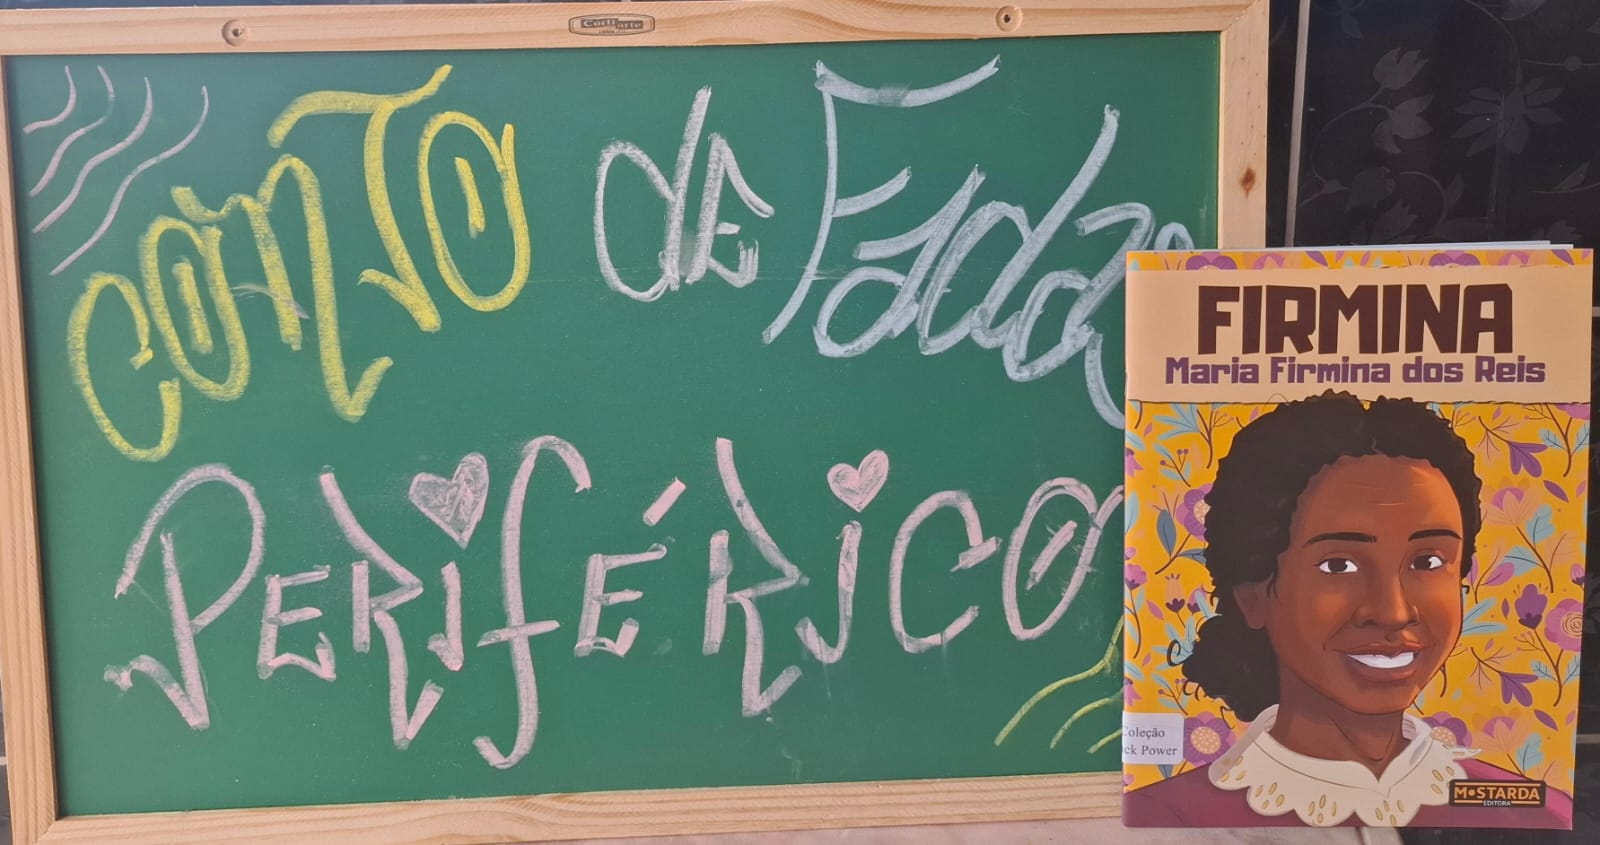 CONTO de Fadas
PERIFÉRICO
FIRMINA
Maria Firmina dos Reis
Coleção
ck Power
MOSTARDA
EDITORA